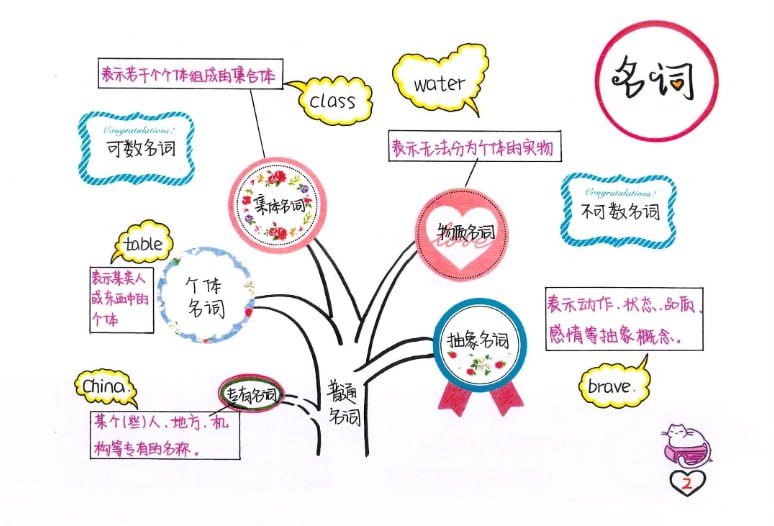 名词
表示若干个个体组成的集合体
class
water
Congratulations!
可数名词
表示无法分为个体的实物
Congratulations!
不可数名词
集体名词
物质名词
love
table
表示某类人
或东西中的
个体
个体
名词
抽象名词
表示动作、状态、品质、
感情等抽象概念。
brave.
China.
专有名词
某个(些)人、地方、机
构等专有的名称。
普通
名词
2